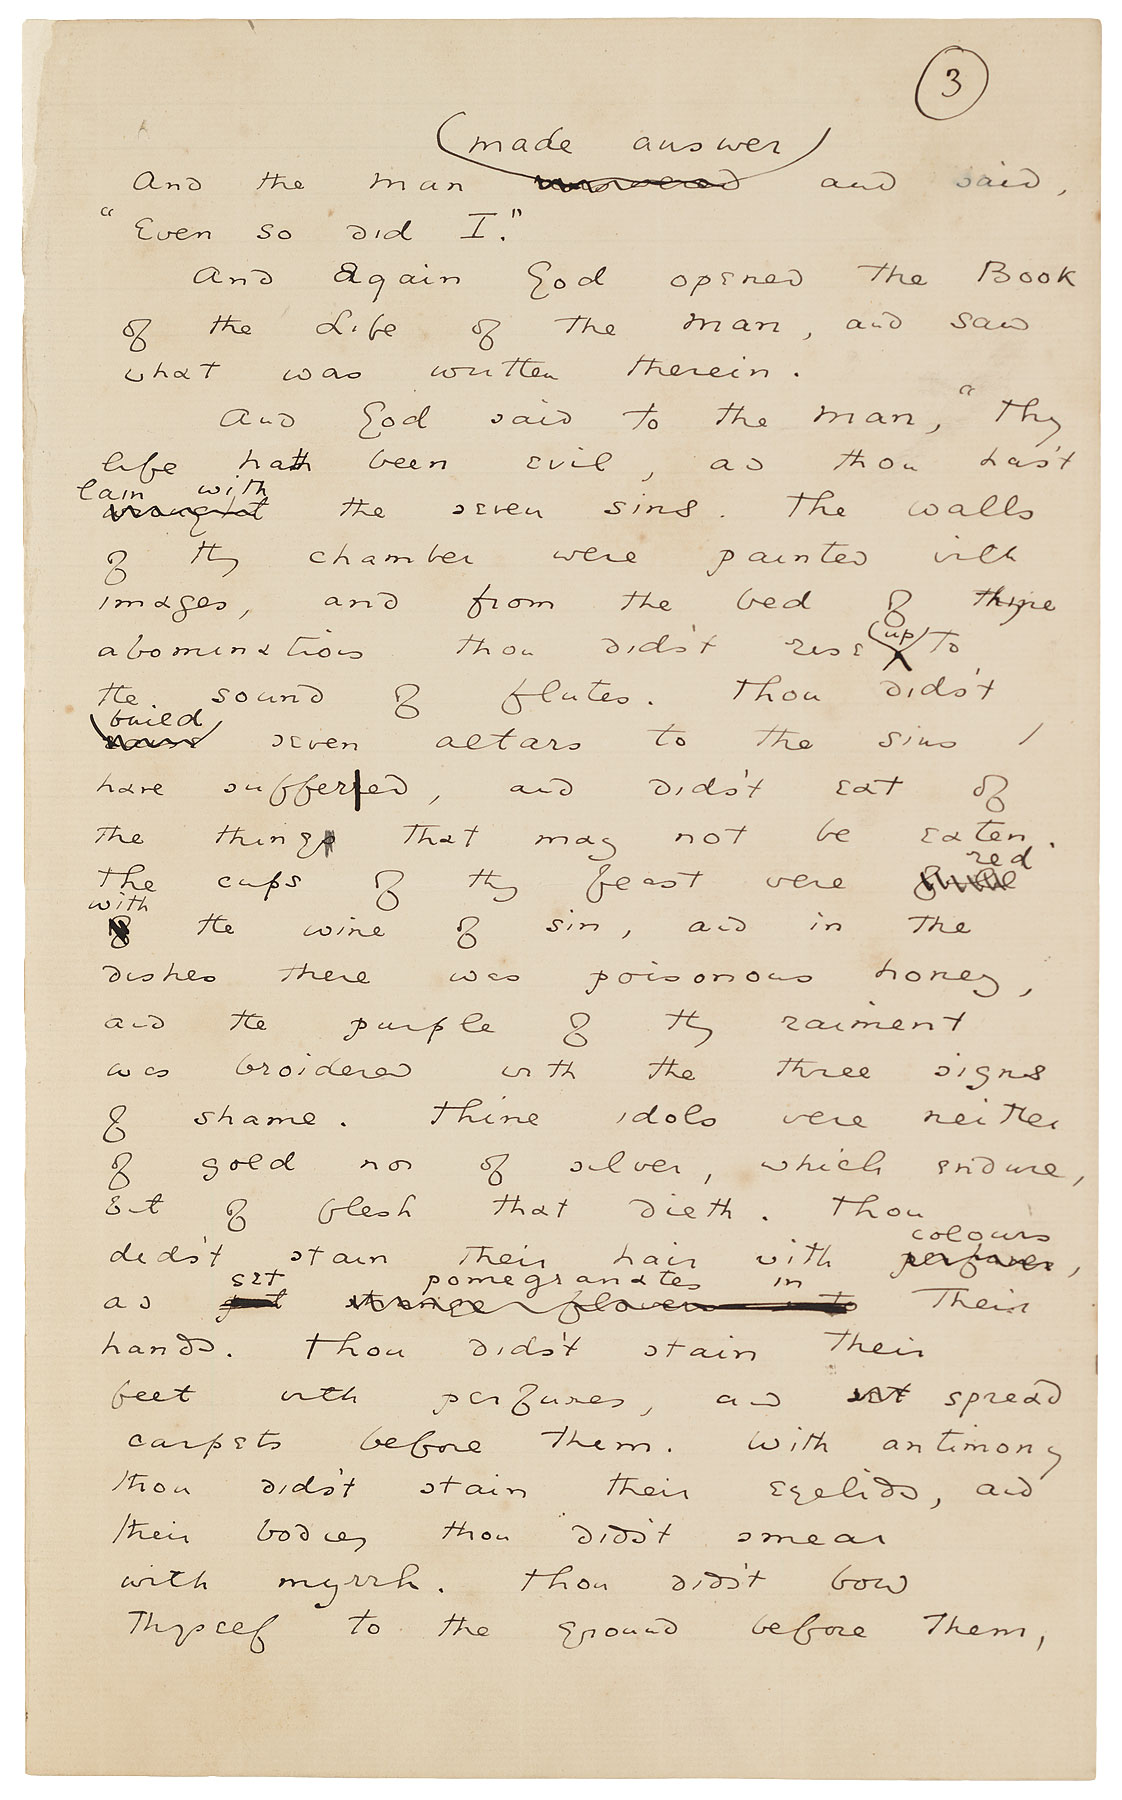 3
made answer
And the man answered and said,
"Even so did I."
And Again God opened the Book
of the Life of the Man, and saw
what was written therein.
And God said to the Man, "Thy
life hath been evil, as thou hast
lain with
wrought the seven sins. The walls
of thy chamber were painted with
images, and from the bed of thine
up
abominations thou did'st rise to
the sound of flutes. Thou did'st
build
raise seven altars to the sins I
have suffered, and did'st eat of
the things that may not be eaten.
red
The cups of thy feast were
with
of the wine of sin, and in the
dishes there was poisonous honey,
and the purple of thy raiment
was broidered with the three signs
of shame. Thine idols were neither
of gold nor of silver, which endure,
but of flesh that dieth. Thou
colours
did'st stain their hair with perfumes,
set pomegranates in
as put strange flowers into their
hands. Thou did'st stain their
feet with perfumes, and set spread
carpets before them. With antimony
thou did'st stain their eyelids, and
their bodies thou did'st smear
with myrrh. Thou did'st bow
thyself to the ground before them,